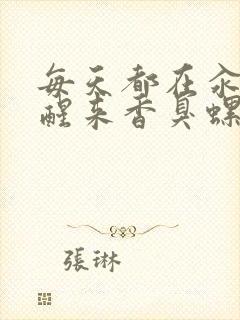 每天都在
醒来香臭螺
張琳